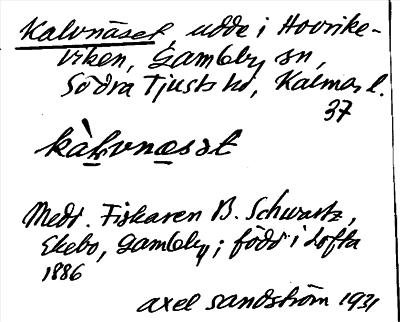 Kalvnäset, udde i Hovrike-
viken, Gamleby sn,
Södra Tjusts hd, Kalmar l.
37
kàlvnæsət
Medd. Fiskaren B. Schwartz,
Ekebo, Gamleby; född i Lofta
1886
Axel Sandström 1931